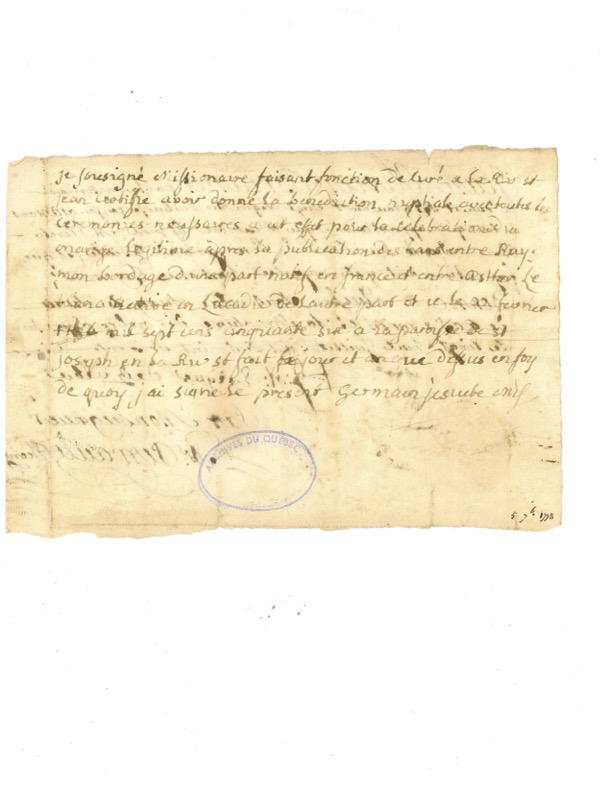 je sousigné Missionaire faisant fonction de Curé a la Riv st
jean certifie avoir donné la benediction nuptiale avec toutes les
ceremonies a cet effet pour la celebration d'u
mariage legitime apres la publication des entre Ray.
mon bordage d'une part natif en france et entre Esther Le
en Lacadie de lautre part et ce le 22 fevrier
mil sept cens cinquante six a la paroisse de st
joseph en la Riv st fait ce jour et an que desus en foy
de quoy j'ai signé le present Germain jesuite
ARCHIVES DU QUÉBEC
5 7